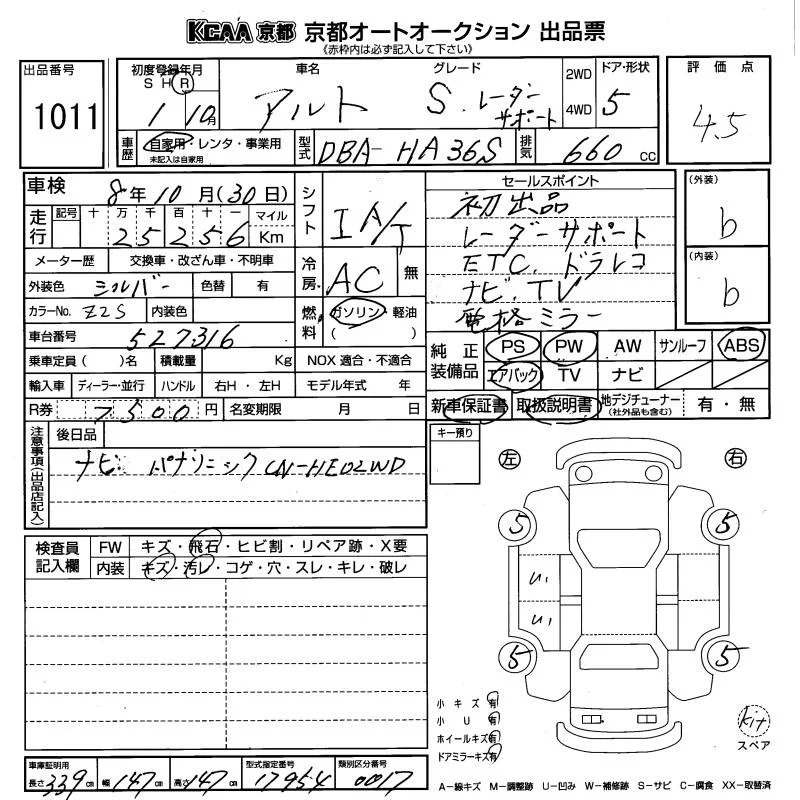 KCAA 京都 京都オートオークション 出品票
《赤枠内は必ず記入して下さい》
出品番号
1011
初度登録年月 車名 グレード 2WD ドア・形状 評価点
S H R
1 10月 アルト S.レーダーサポート 4WD 5 4.5
車歴 自家用・レンタ・事業用 未記入は自家用 型式 DBA-HA36S 排気 660 cc
車検 8年10月(30日) シフト IA/T セールスポイント (外装)
走行 記号 十 万 千 百 十 一 マイル 初出品 b
25256 Km レーダーサポート
メーター歴 交換車・改ざん車・不明車 冷房 AC 無 ETC.ドラレコ (内装)
外装色 シルバー 色替 有 ナビ.TV b
カラーNo. Z2S 内装色 燃料 ガソリン・軽油 ( ) 電格ミラー
車台番号 527316 純正装備品 PS PW AW サンルーフ ABS
乗車定員( )名 積載量 Kg NOX 適合・不適合 エアバック TV ナビ
輸入車 ディーラー・並行 ハンドル 右H・左H モデル年式 年
R券 7500円 名変期限 月 日 新車保証書 取扱説明書 地デジチューナー (社外品も含む) 有・無
注意事項(出品店記入) 後日品 キー預り
ナビ パナソニック CN-HE02WD
左 右
5 5
検査員記入欄 FW キズ・飛石・ヒビ割・リペア跡・X要
内装 キズ・汚レ・コゲ・穴・スレ・キレ・破レ
U1
U1
5 5
小キズ有
小U有
ホイールキズ有
ドアミラーキズ有
kit
スペア
車庫証明用 型式指定番号 類別区分番号
長さ339cm 幅147cm 高さ147cm 17954 0017
A-線キズ M-調整跡 U-凹み W-補修跡 S-サビ C-腐食 XX-取替済